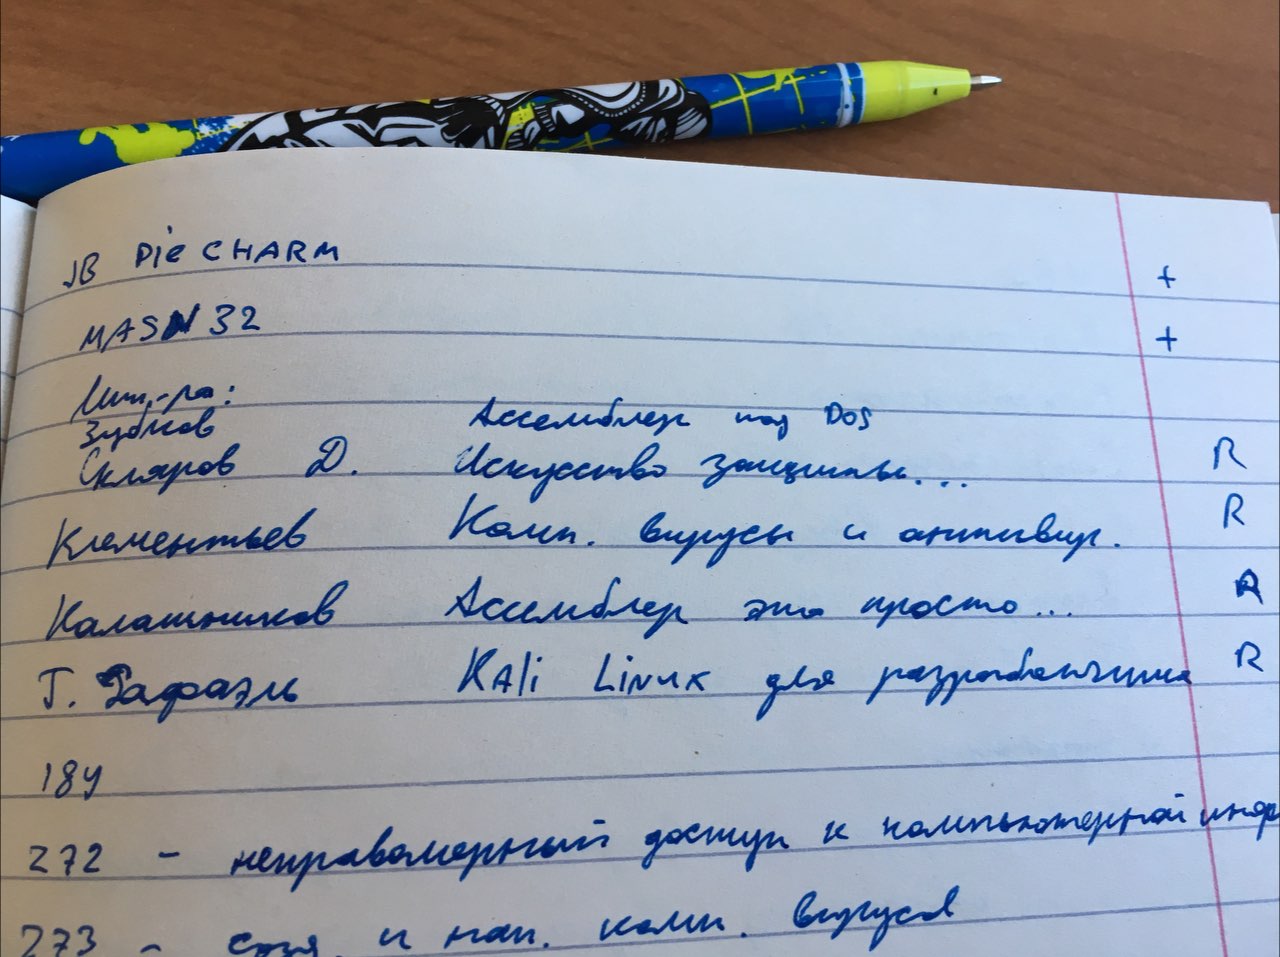 JB PieCHARM +
MASM 32 +
Лит-ра:
Зубков Ассемблер под DOS
Скляров Д. Искусство защиты... R
Климентьев Комп. вирусы и антивир. R
Калашников Ассемблер это просто... R
Г. Рафаэль Kali Linux для разработчика R
184
272 - неправомерный доступ к компьютерной инфор
273 - созд. и комп. вирусов